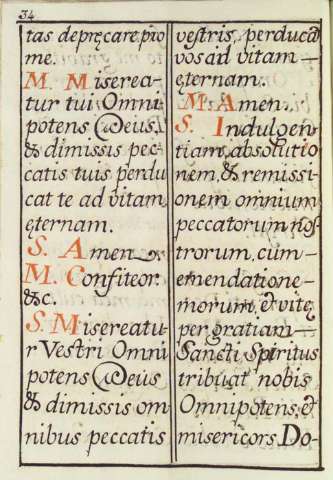 34
tas depręcare, pio
me.
M. Miserea-
tur tui Omni
potens Deus,
& dimissis pec-
catis tuis perdu
cat te ad vitam
ęternam.
S. Amen
M. Confiteor
&c.
S. Misereatu-
r Vestri Omni
potens Deus
& dimissis om
nibus peccatis
vestris, perducā
vos ad vitam—
ęternam.
M. Amen.
S. Indulgen
tiam, absolutio
nem, & remissi-
onem omnium
peccatorum nos
trorum, cum—
emendatione—
morum, et vitę
per gratiam—
Sancti Spiritus
tribuat nobis
Omnipotens, et
misericors Do-